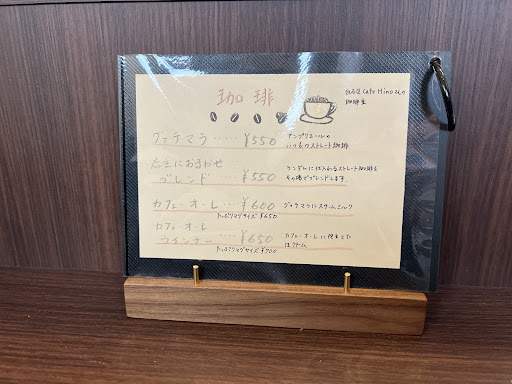 珈琲
自家焙煎 Cafe Minozicoの
珈琲豆
グァテマラ ····· ¥550
アンプリエールの
いつものストレート珈琲
店主におまかせ
ブレンド ····· ¥550
ランダムに仕入れるストレート珈琲を
その場でブレンドします
カフェ·オ·レ ···· ¥600
グァテマラにスチームミルク
たっぷりマグサイズ ¥650
カフェ·オ·レ
ウインナー ···· ¥650
カフェ·オ·レに泡立てた
生クリーム
たっぷりマグサイズ ¥700